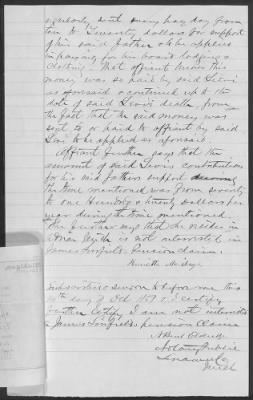 regularly sent every pay day from
ten to Twenty dollars for support
of his said father to be applied
in paying for his board lodging &
clothing. That affiant knows this
money was so paid by said Levi
as aforesaid & continued up to the
date of said Levi's death, from
the fact that the said money was
sent to or paid to affiant by said
Levi to be applied as aforesaid.
Affiant further says that the
amount of said Levi's contribution
for his said fathers support during
the time mentioned was from seventy
to one Hundred & twenty dollars per
year during the time mentioned.
He further says that he resides in
Mich & is not interested in
James pension claim.
Subscribed & sworn to before me this
day of Oct I certify
further certify I am not interested
in James pension claim
Notary Public
Mich